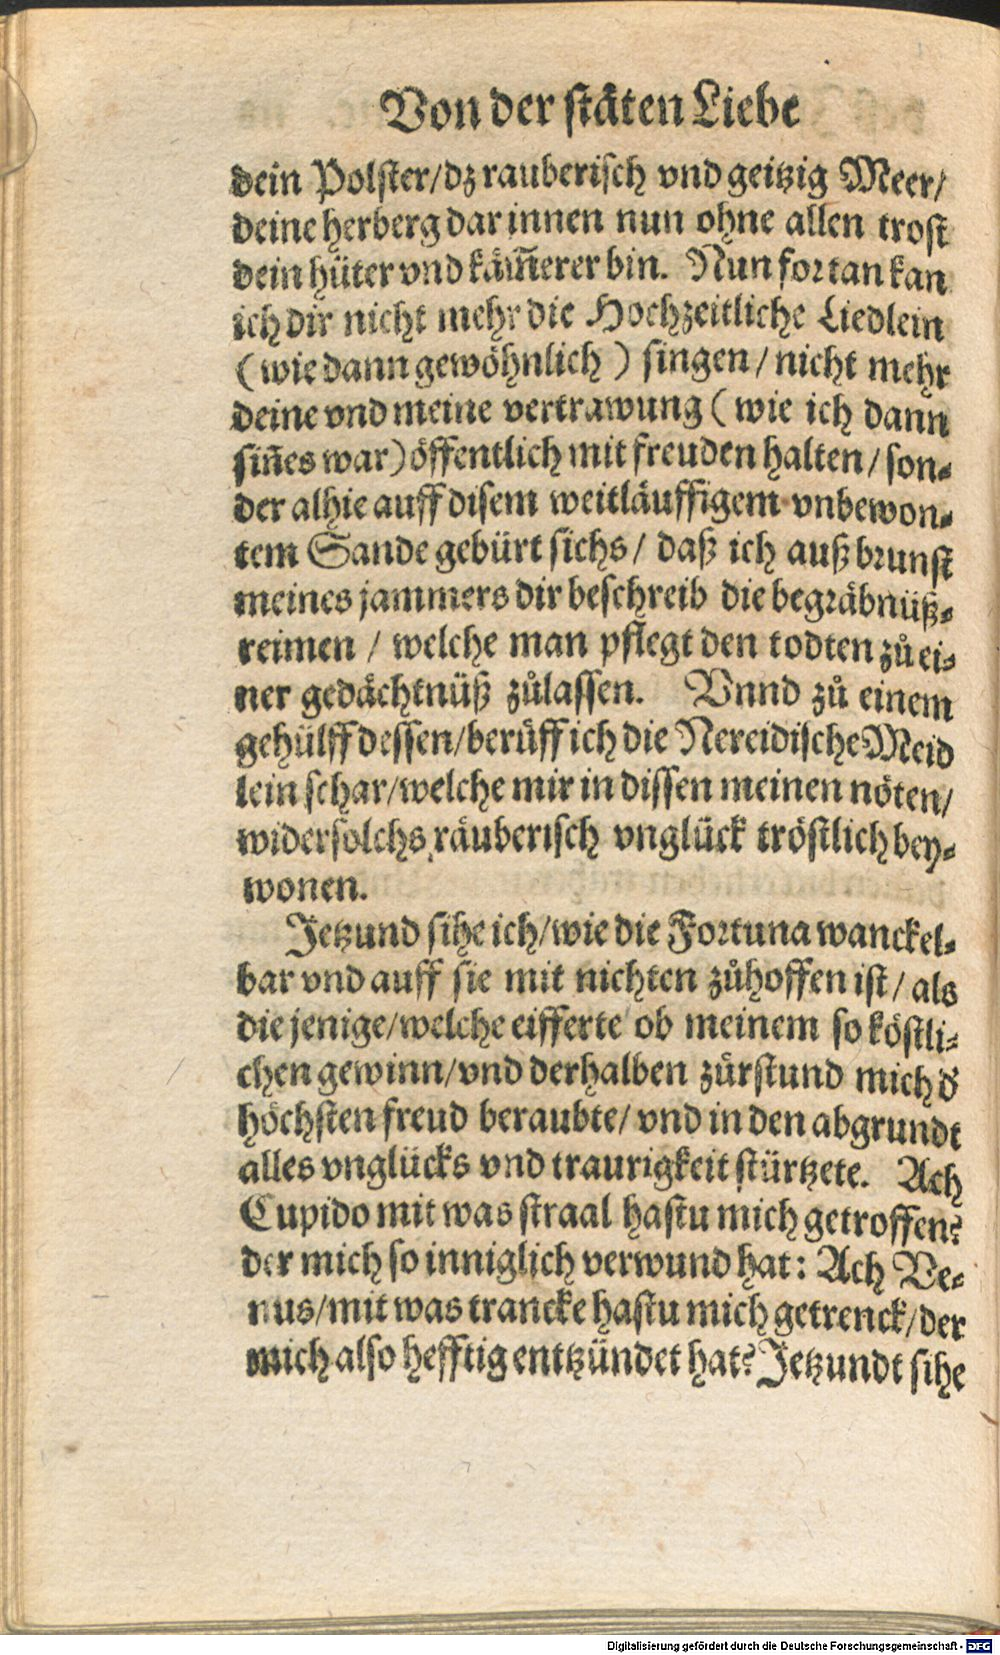 Von der ſtäten Liebe
dein Polſter/dz rauberiſch vnd geitzig Meer/
deine herberg dar innen nun ohne allen troſt
dein hüter vnd käm̃erer bin. Nun fortan kan
ich dir nicht mehr die Hochzeitliche Liedlein
(wie dann gewöhnlich) ſingen/nicht mehr
deine vnd meine vertrawung (wie ich dann
ſiñes war) öffentlich mit freuden halten/ſon-
der alhie auff diſem weitläuffigem vnbewon-
tem Sande gebürt ſichs/ daß ich auß brunſt
meines jammers dir beſchreib die begräbnüß-
reimen / welche man pflegt den todten zů ei-
ner gedächtnüß zůlaſſen. Vnnd zů einem
gehülff deſſen/berůff ich die Nereidiſche Meid
lein ſchar/welche mir in diſſen meinen nöten/
wider ſolchs räuberiſch vnglück tröſtlich bey-
wonen.
Jetzund ſihe ich/wie die Fortuna wanckel-
bar vnd auff ſie mit nichten zůhoffen iſt/ als
die jenige/welche eifferte ob meinem ſo köſtli-
chen gewinn/vnd derhalben zůrſtund mich d'
höchſten freud beraubte/ vnd in den abgrundt
alles vnglücks vnd traurigkeit ſtürtzete. Ach
Cupido mit was ſtraal haſtu mich getroffen?
der mich ſo inniglich verwund hat: Ach Ve-
nus/mit was trancke haſtu mich getrenck/der
mich alſo hefftig entzündet hat? Jetzundt ſihe
Digitalisierung gefördert durch die Deutsche Forschungsgemeinschaft - DFG